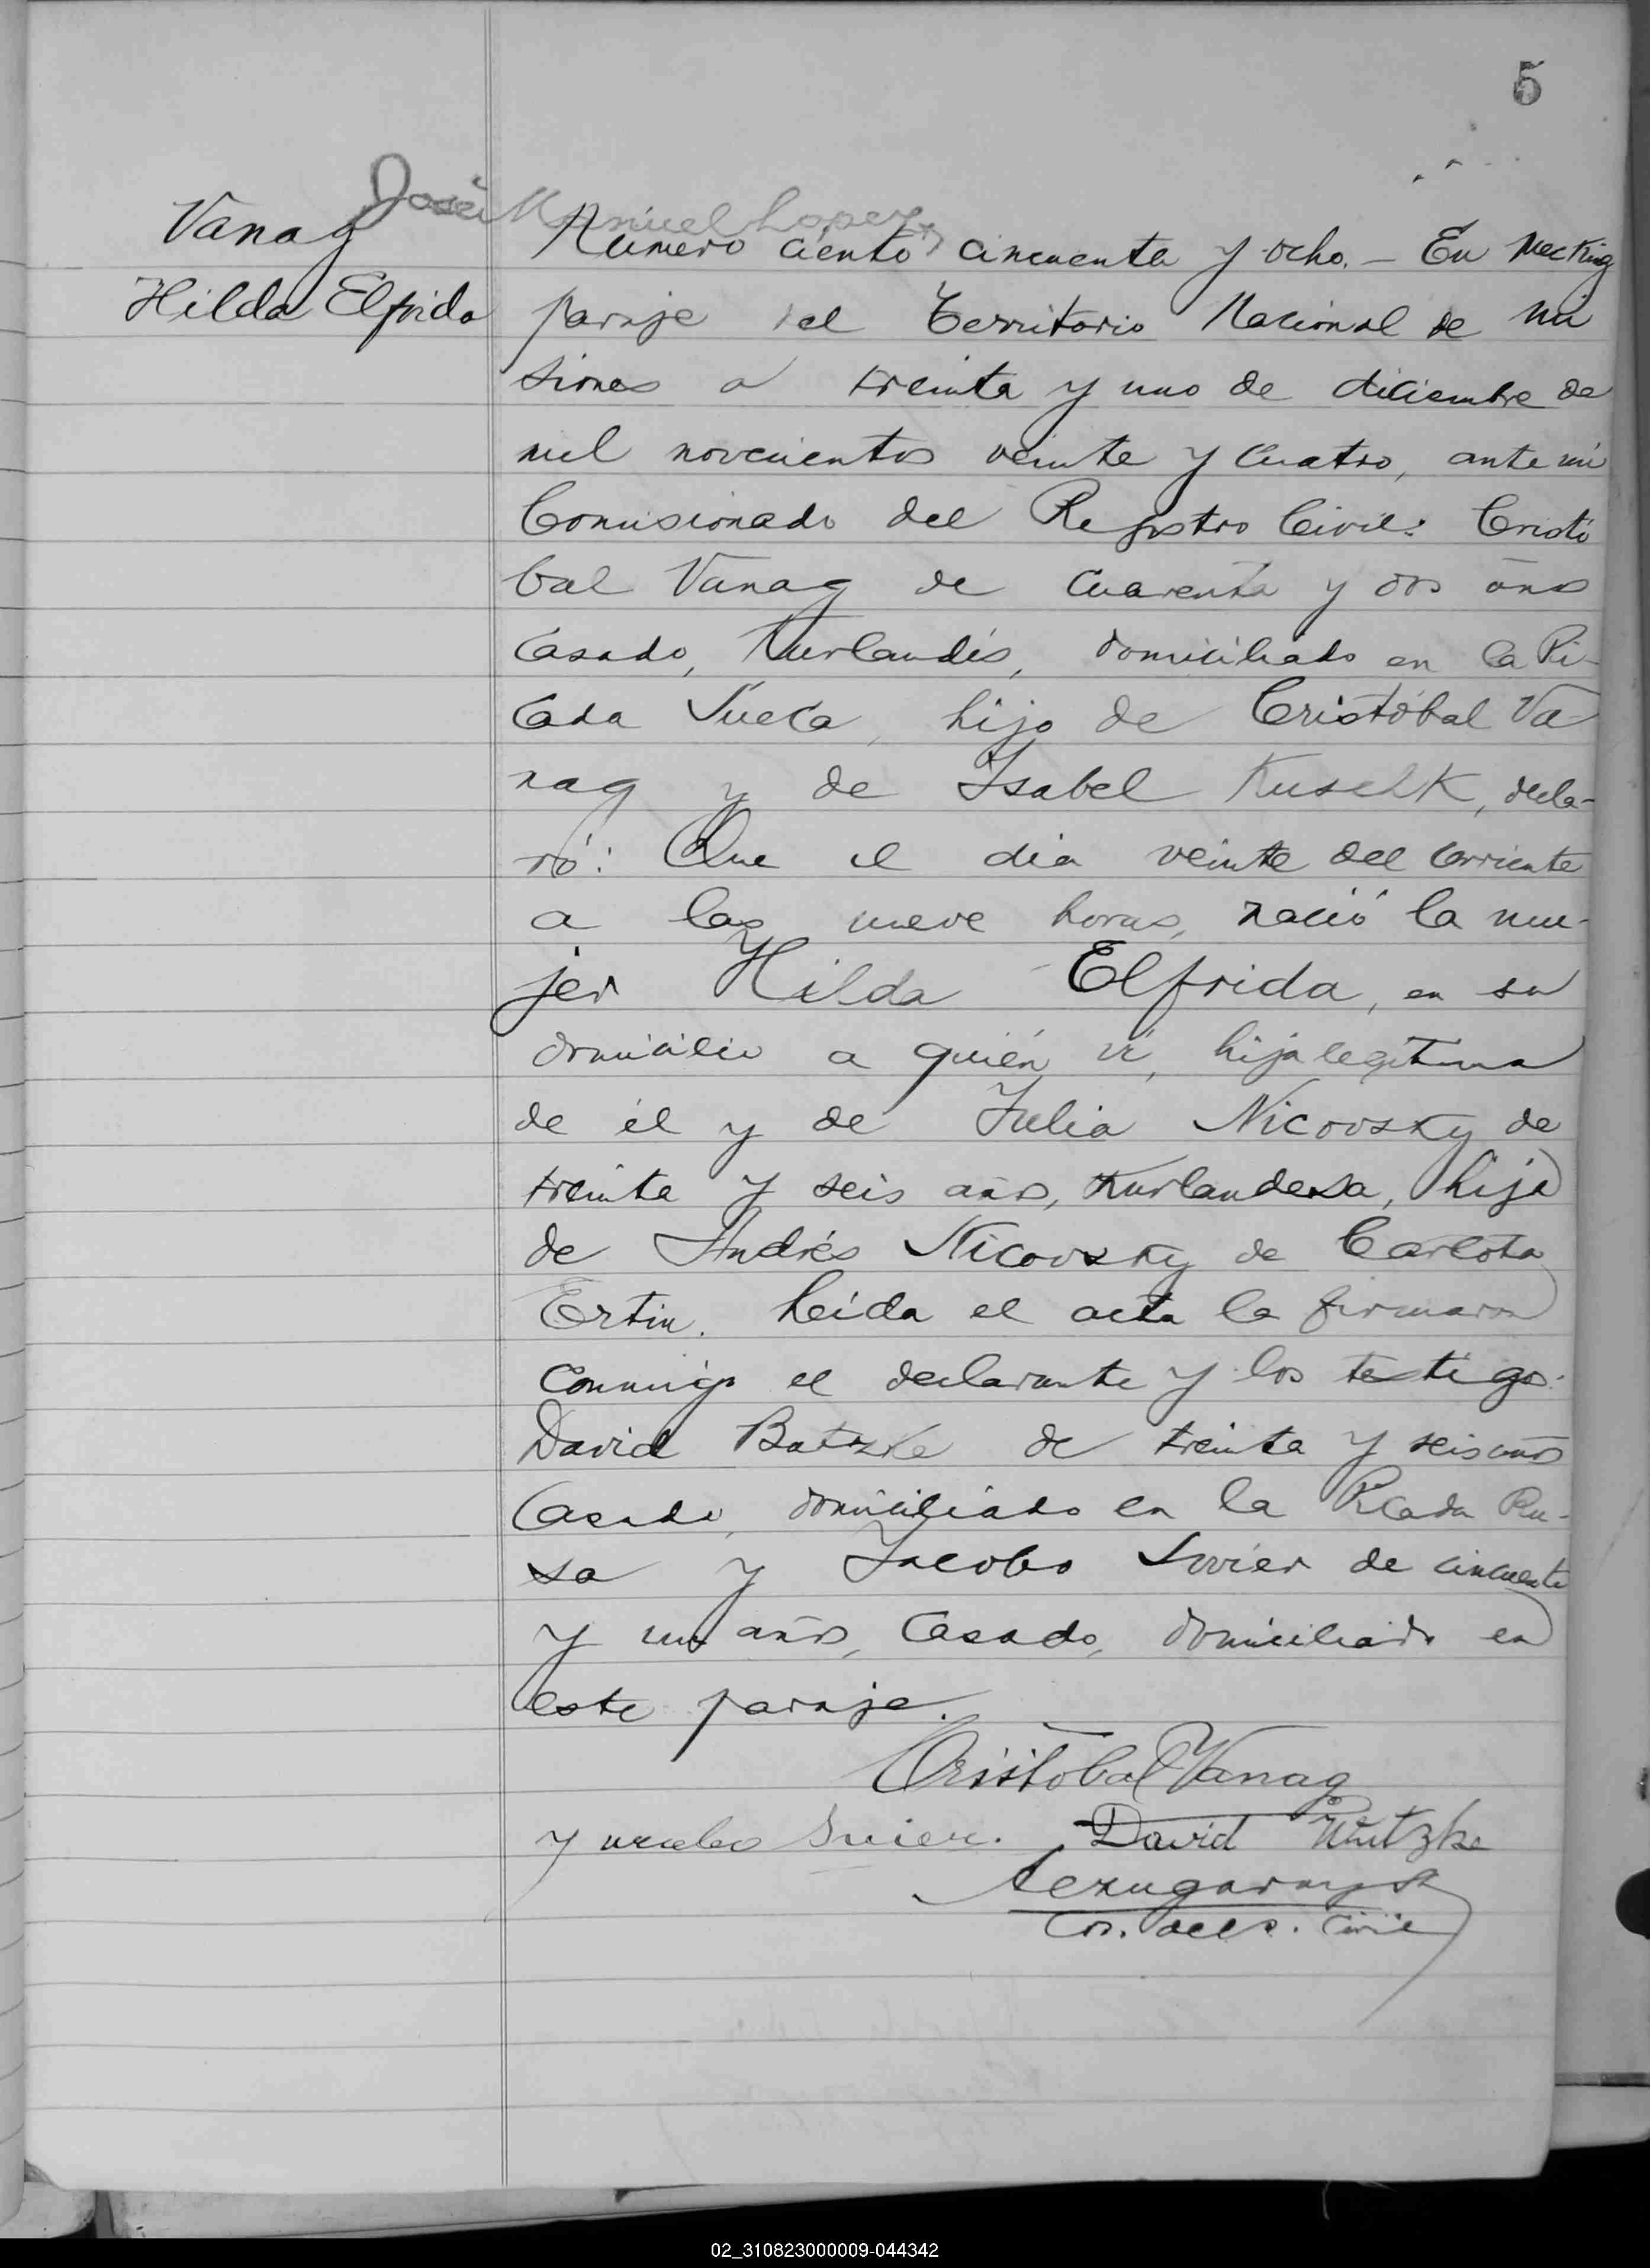 5
José Manuel Lopez
Vanag
Hilda Elfrida
Número ciento cincuenta y ocho. – En Mecking
paraje del Territorio Nacional de Mi
siones a treinta y uno de diciembre de
mil novecientos veinte y cuatro, ante mí
Comisionado del Registro Civil: Cristó
bal Vanag de cuarenta y dos años
casado, Kurlandés, domiciliado en la Pi-
cada Sueca, hijo de Cristóbal Va
nag y de Isabel Kuschk, decla-
ró: Que el día veinte del corriente
a las nueve horas, nació la mu-
jer Hilda Elfrida, en su
domicilio a quién ví, hija legítima
de él y de Julia Nicovsky de
treinta y seis años, Kurlandesa, hija
de Andrés Nicovsky de Carlota
Ertin. Leída el acta la firmaron
conmigo el declarante y los testigos:
David Batzke de treinta y seis años
casado, domiciliado en la Picada Ru-
sa y Jacobo Suvier de cincuenta
y un años, casado, domiciliado en
este paraje.
Cristobal Vanag
David
Civil
02_310823000009-044342